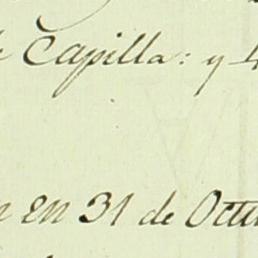 Capilla: y
en 31 de Octu